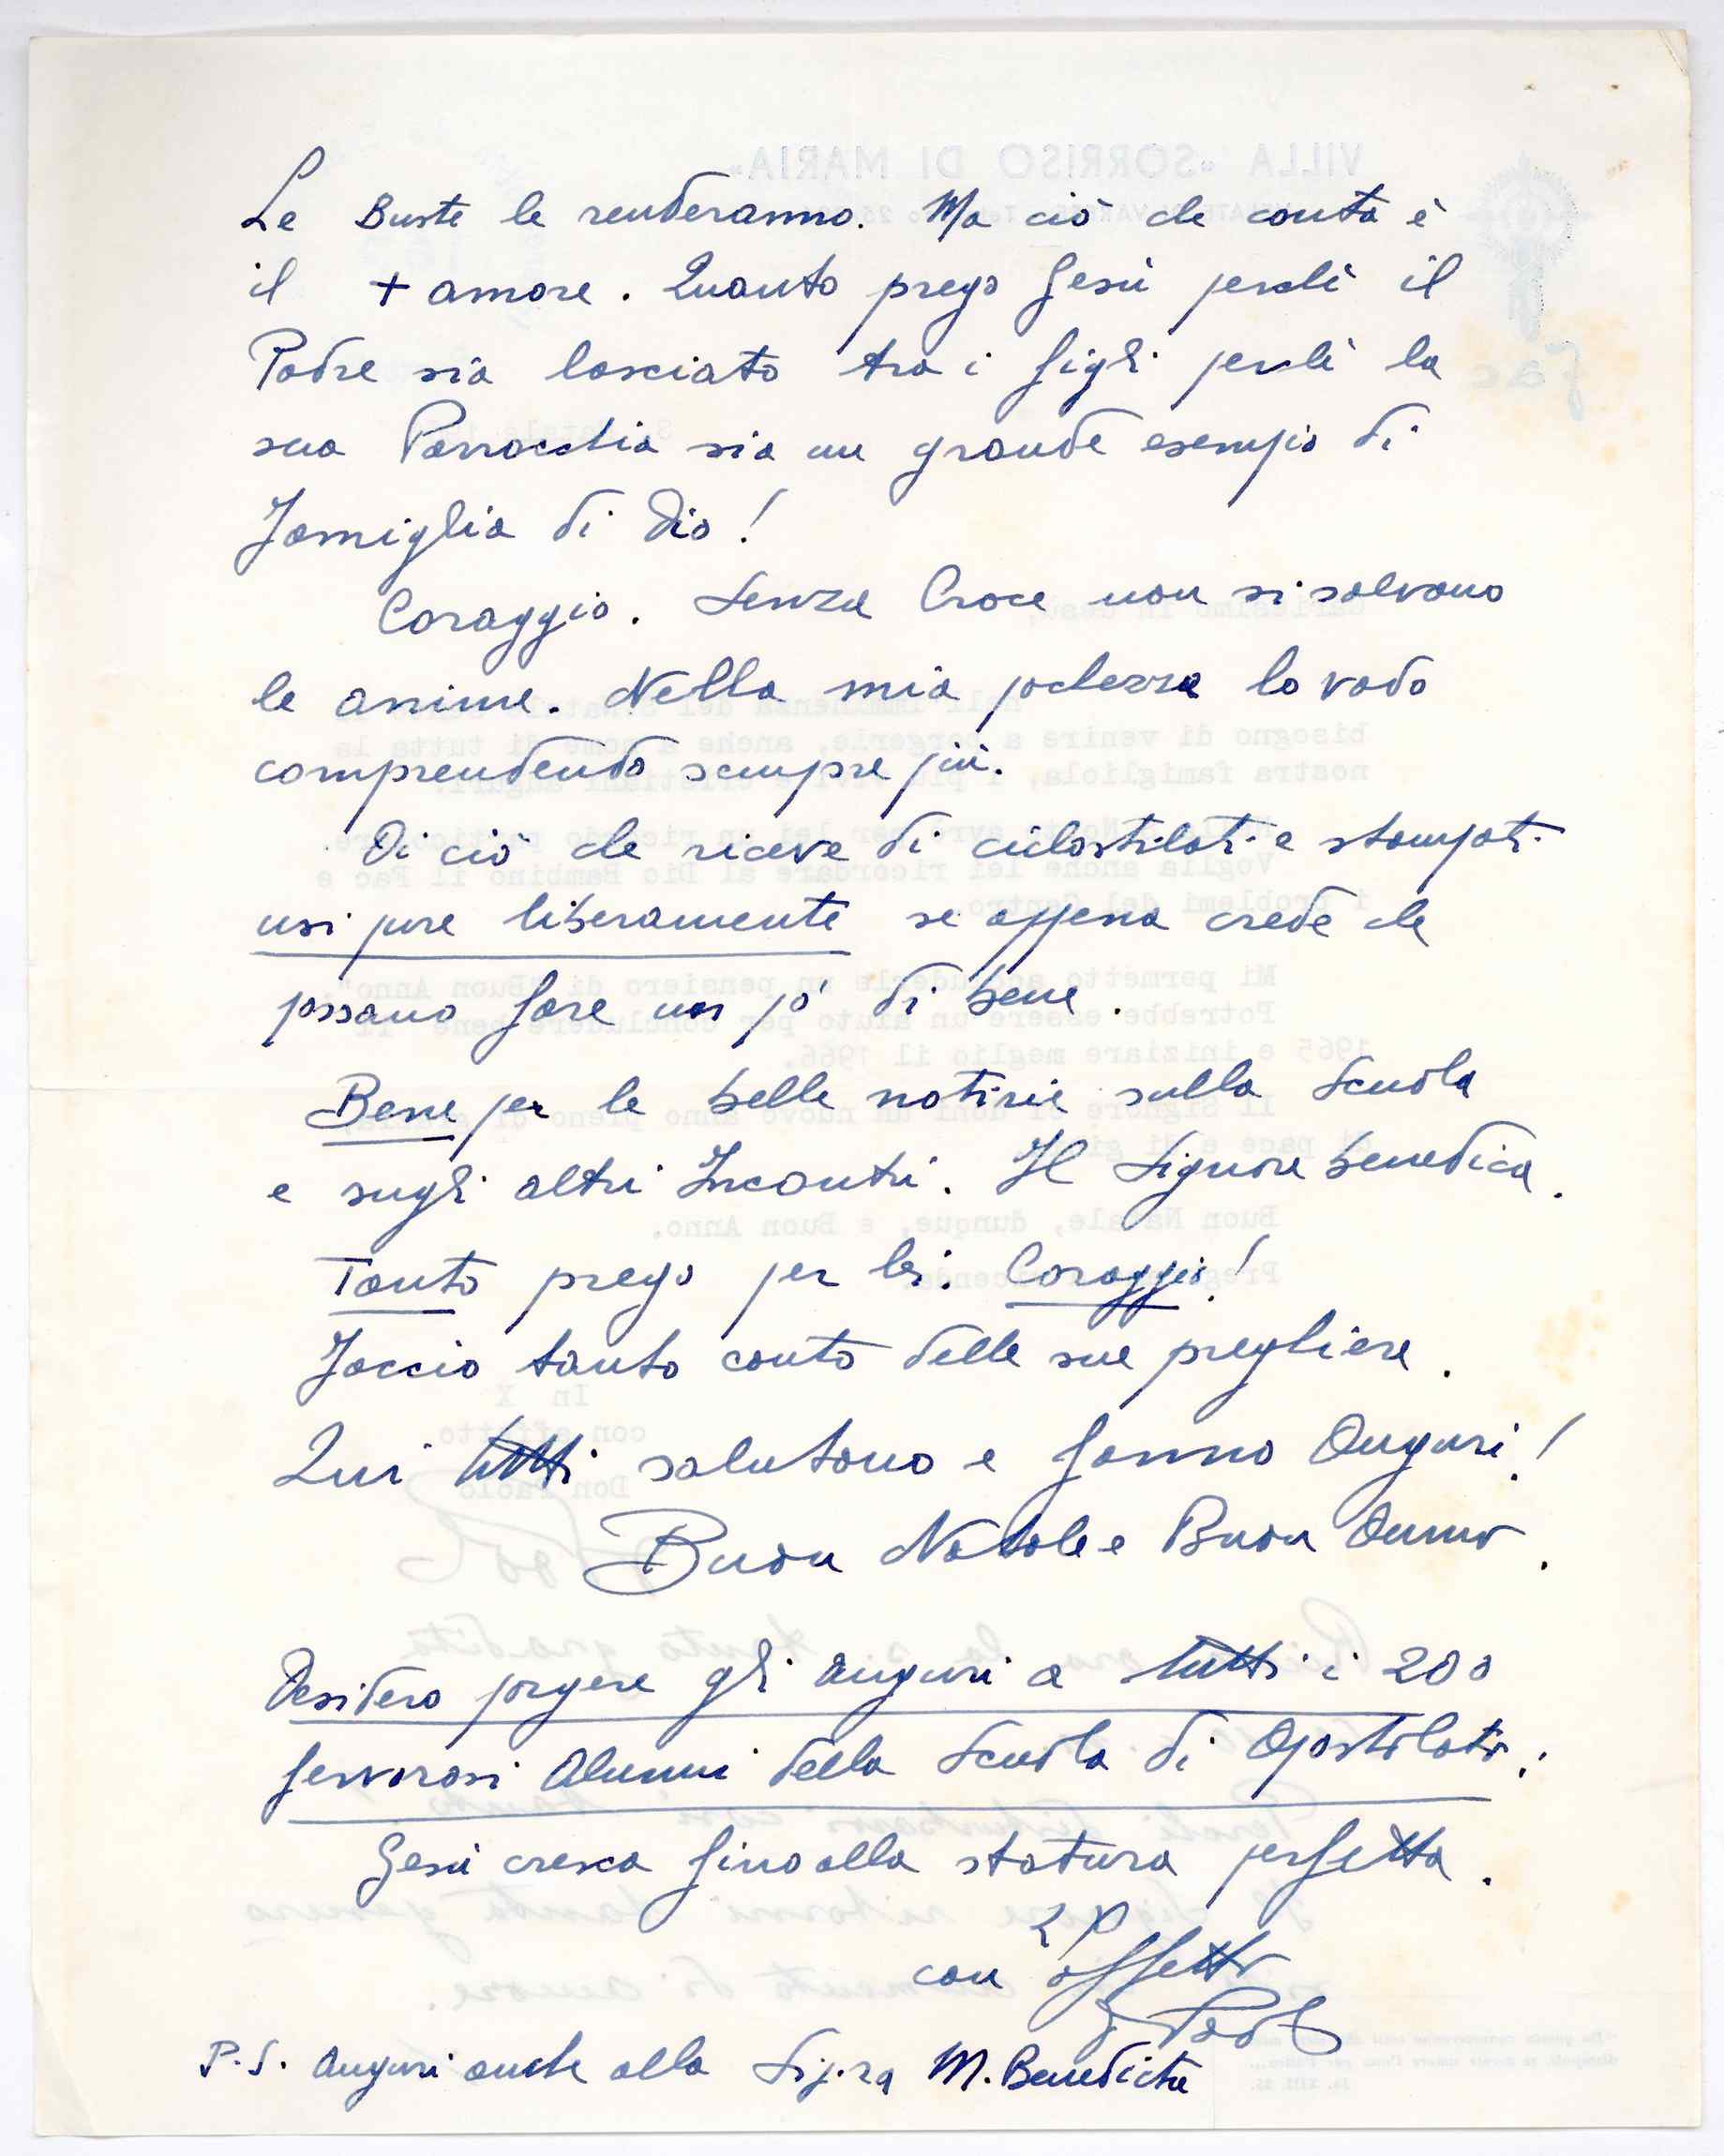 Le Buste le renderanno. Ma ciò che conta è
il + amore. Quanto prego Gesù perchè il
Padre sia lasciato tra i figli perchè la
sua Parrocchia sia un grande esempio di
Famiglia di Dio!
Coraggio. Senza Croce non si salvano
le anime. Nella mia pochezza lo vado
comprendendo sempre più.
Di ciò che riceve di ciclostilati e stampati
usi pure liberamente se appena crede che
possano fare un pò di bene.
Bene per le belle notizie sulla Scuola
e sugli altri Incontri. Il Signore benedica.
Tanto prego per lei. Coraggio!
Faccio tanto conto delle sue preghiere.
Qui tutti salutano e fanno Auguri!
Buon Natale e Buon Anno.
Desidero porgere gli auguri a tutti i 200
fervorosi Alunni della Scuola di Apostolato.
Gesù cresca fino alla statura perfetta.
con affetto
d Paolo
P.S. Auguri anche alla Sig.ra M. Benedicta